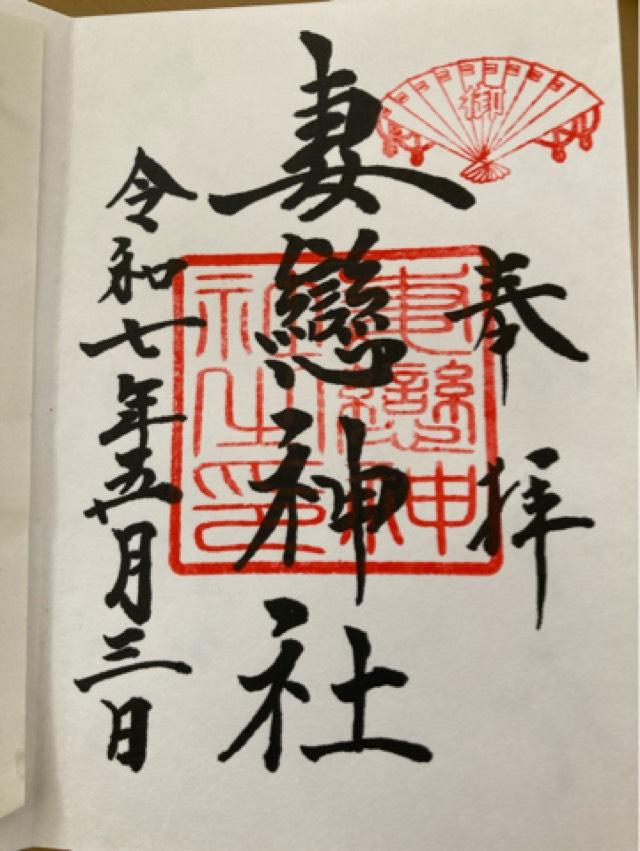 御
奉拝
妻戀神社
妻戀神社之印
令和七年五月三日